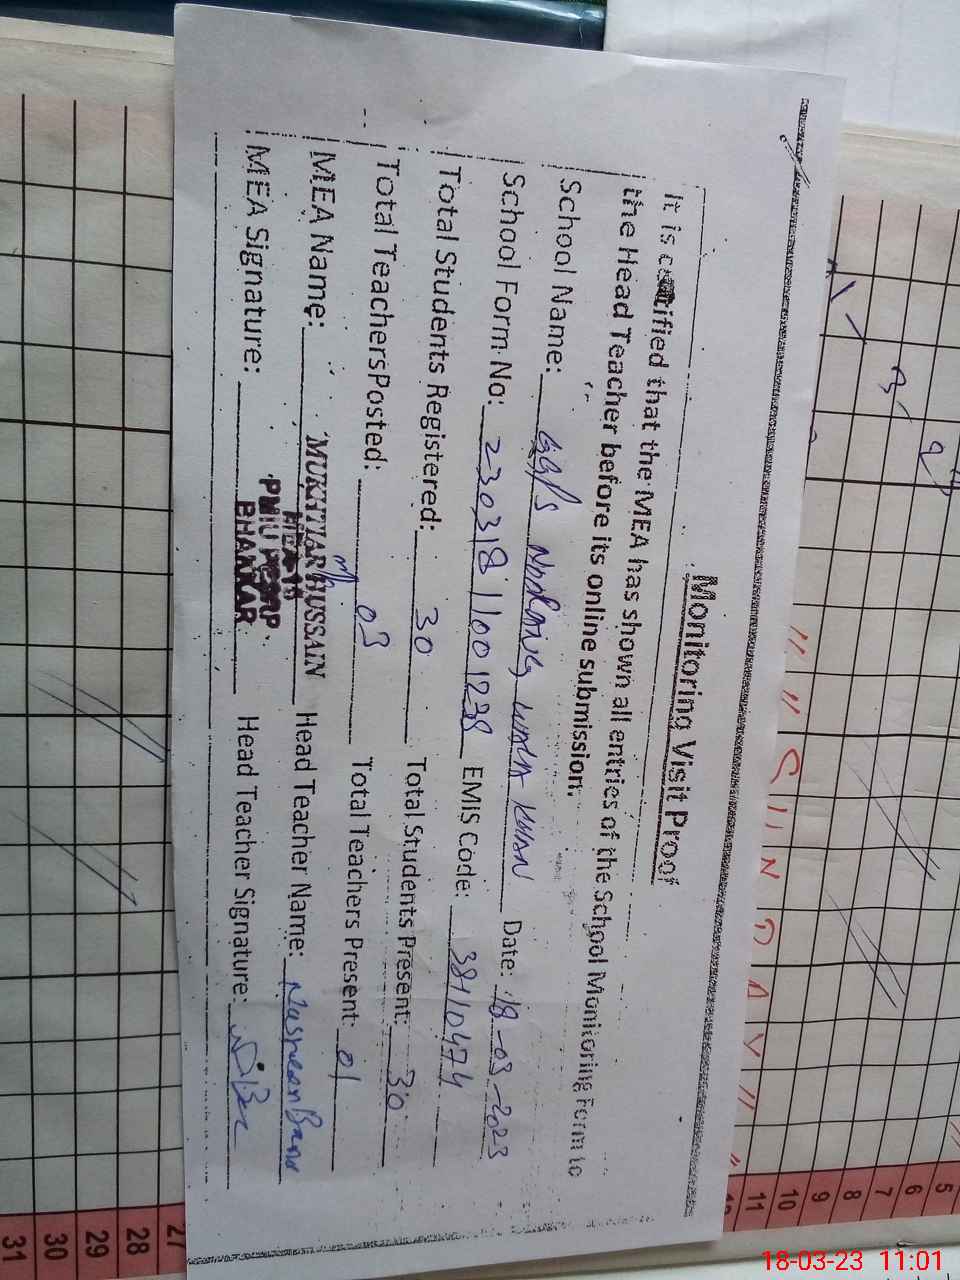 Monitoring Visit Proof
It is certified that the MEA has shown all entries of the School Monitoring Form to
the Head Teacher before its online submission.
School Name: GGPS WALA KHAN Date: 18-03-2023
School Form No: 230318 11001238 EMIS Code: 38110474
Total Students Registered: 30 Total Students Present: 30
Total TeachersPosted: 03 Total Teachers Present: 01
MEA Name: MUKHTIAR HUSSAIN Head Teacher Name:
MEA Signature: Head Teacher Signature:
PMIU PESRP
BHAKKAR
SUNDAY
5
6
7
8
9
10
11
12
27
28
29
30
31
18-03-23 11:01